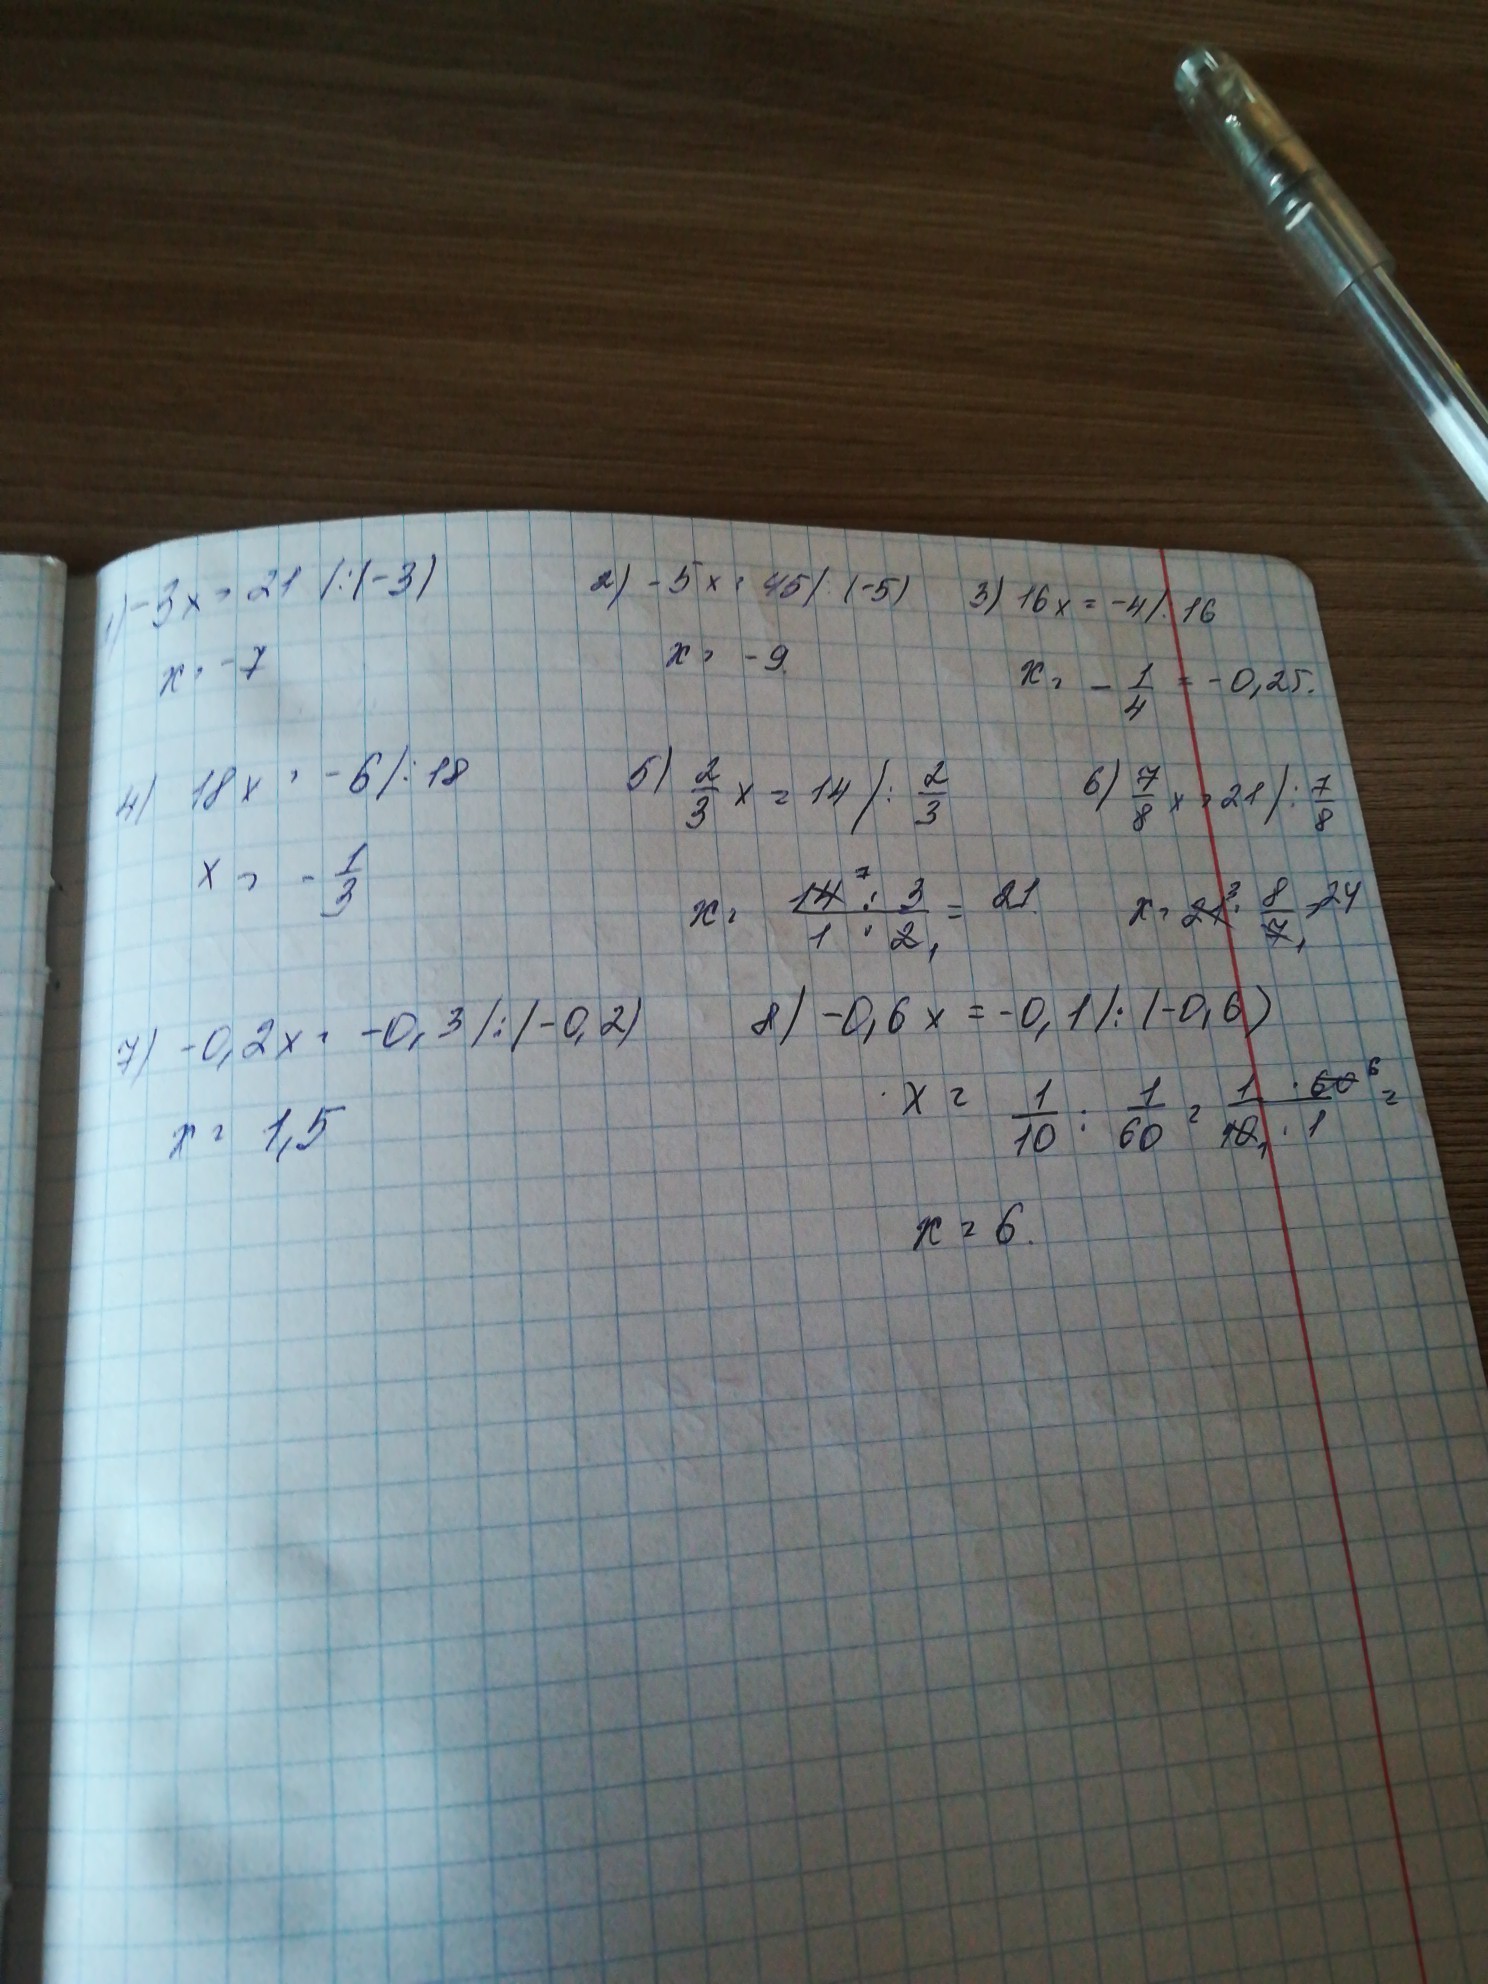 1) -3x = 21 /:(-3)
x = -7
2) -5x = 45/:(-5)
x = -9.
3) 16x = -4/:16
x = -1/4 = -0,25.
4) 18x = -6/:18
x = -1/3
5) 2/3 x = 14 /: 2/3
x = 14⁷ · 3 / 1 · 2₁ = 21.
6) 7/8 x = 21/: 7/8
x = 21³ · 8/7₁ = 24
7) -0,2x = -0,3/:(-0,2)
x = 1,5
8) -0,6x = -0,1/:(-0,6)
x = 1/10 : 1/60 = 1 · 60⁶ / 10₁ · 1 =
x = 6.